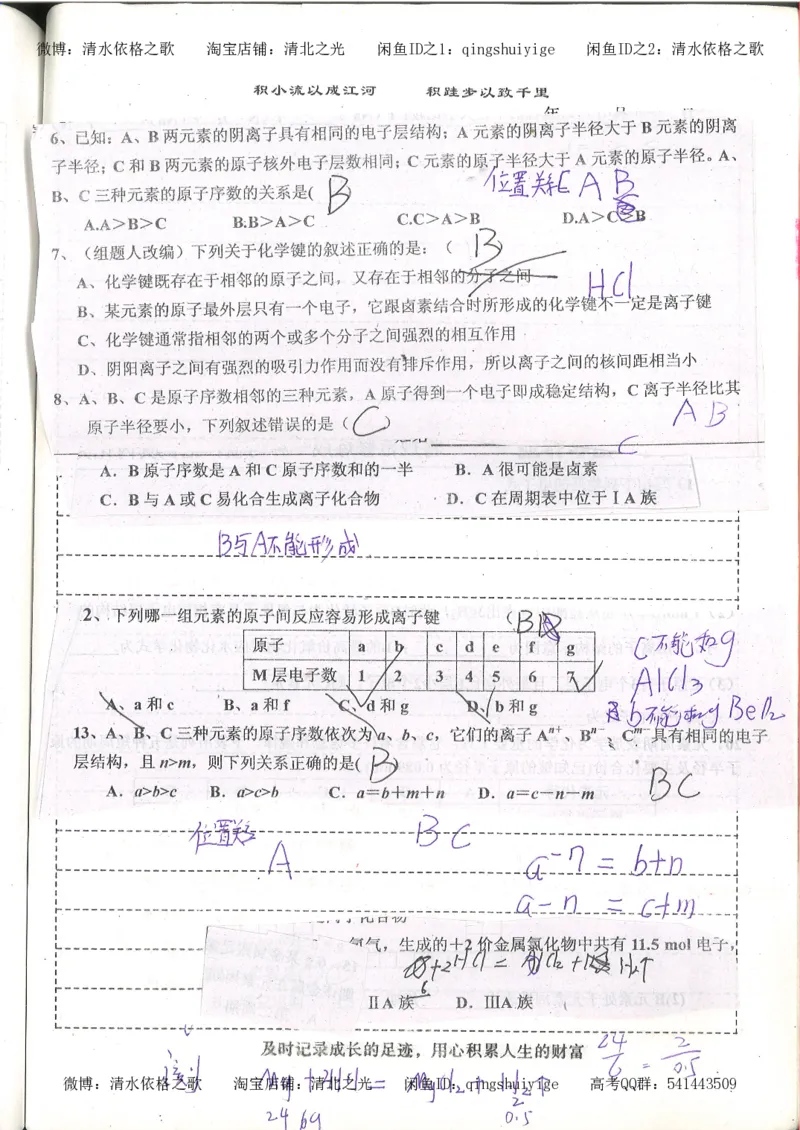 微博：清水依格之歌 淘宝店铺：清北之光 闲鱼ID之1：qingshuiyige 闲鱼ID之2：清水依格之歌
积小流以成江河 积跬步以致千里
6、已知：A、B两元素的阴离子具有相同的电子层结构；A元素的阴离子半径大于B元素的阴离
子半径；C和B两元素的原子核外电子层数相同；C元素的原子半径大于A元素的原子半径。A、
B、C三种元素的原子序数的关系是( B
位置关系 A B
C
A.A＞B＞C B.B＞A＞C C.C＞A＞B D.A＞C＞B
7、（组题人改编）下列关于化学键的叙述正确的是：（ B
A、化学键既存在于相邻的原子之间，又存在于相邻的分子之间
HCl
B、某元素的原子最外层只有一个电子，它跟卤素结合时所形成的化学键不一定是离子键
C、化学键通常指相邻的两个或多个分子之间强烈的相互作用
D、阴阳离子之间有强烈的吸引力作用而没有排斥作用，所以离子之间的核间距相当小
8、A、B、C是原子序数相邻的三种元素，A原子得到一个电子即成稳定结构，C离子半径比其
原子半径要小，下列叙述错误的是（ C
A B
C
A．B原子序数是A和C原子序数和的一半 B．A很可能是卤素
C．B与A或C易化合生成离子化合物 D．C在周期表中位于ⅠA族
B与A不能形成
2、下列哪一组元素的原子间反应容易形成离子键 （ B
原子 a b c d e f g
M层电子数 1 2 3 4 5 6 7
C不能和g
AlCl3
A、a和c B、a和f C、d和g D、b和g
b不能和g BeCl2
13、A、B、C三种元素的原子序数依次为a、b、c，它们的离子Aⁿ⁺、Bⁿ⁻、Cᵐ⁻具有相同的电子
层结构，且n>m，则下列关系正确的是( B
A．a>b>c B．a>c>b C．a＝b＋m＋n D．a＝c－n－m
BC
位置关系 BC
A
a-n = b+n
a-n = c+m
氢气，生成的＋2价金属氯化物中共有11.5 mol电子，
+2HCl = Cl2 + H2↑
6
ⅡA族 D．ⅢA族
及时记录成长的足迹，用心积累人生的财富
24/6 = 2/0.5
微博：清水依格之歌 淘宝店铺：清北之光 闲鱼ID：qingshuiyige 高考QQ群：541443509
Mg + 2HCl = MgCl2 + H2↑
24 6g 2
0.5